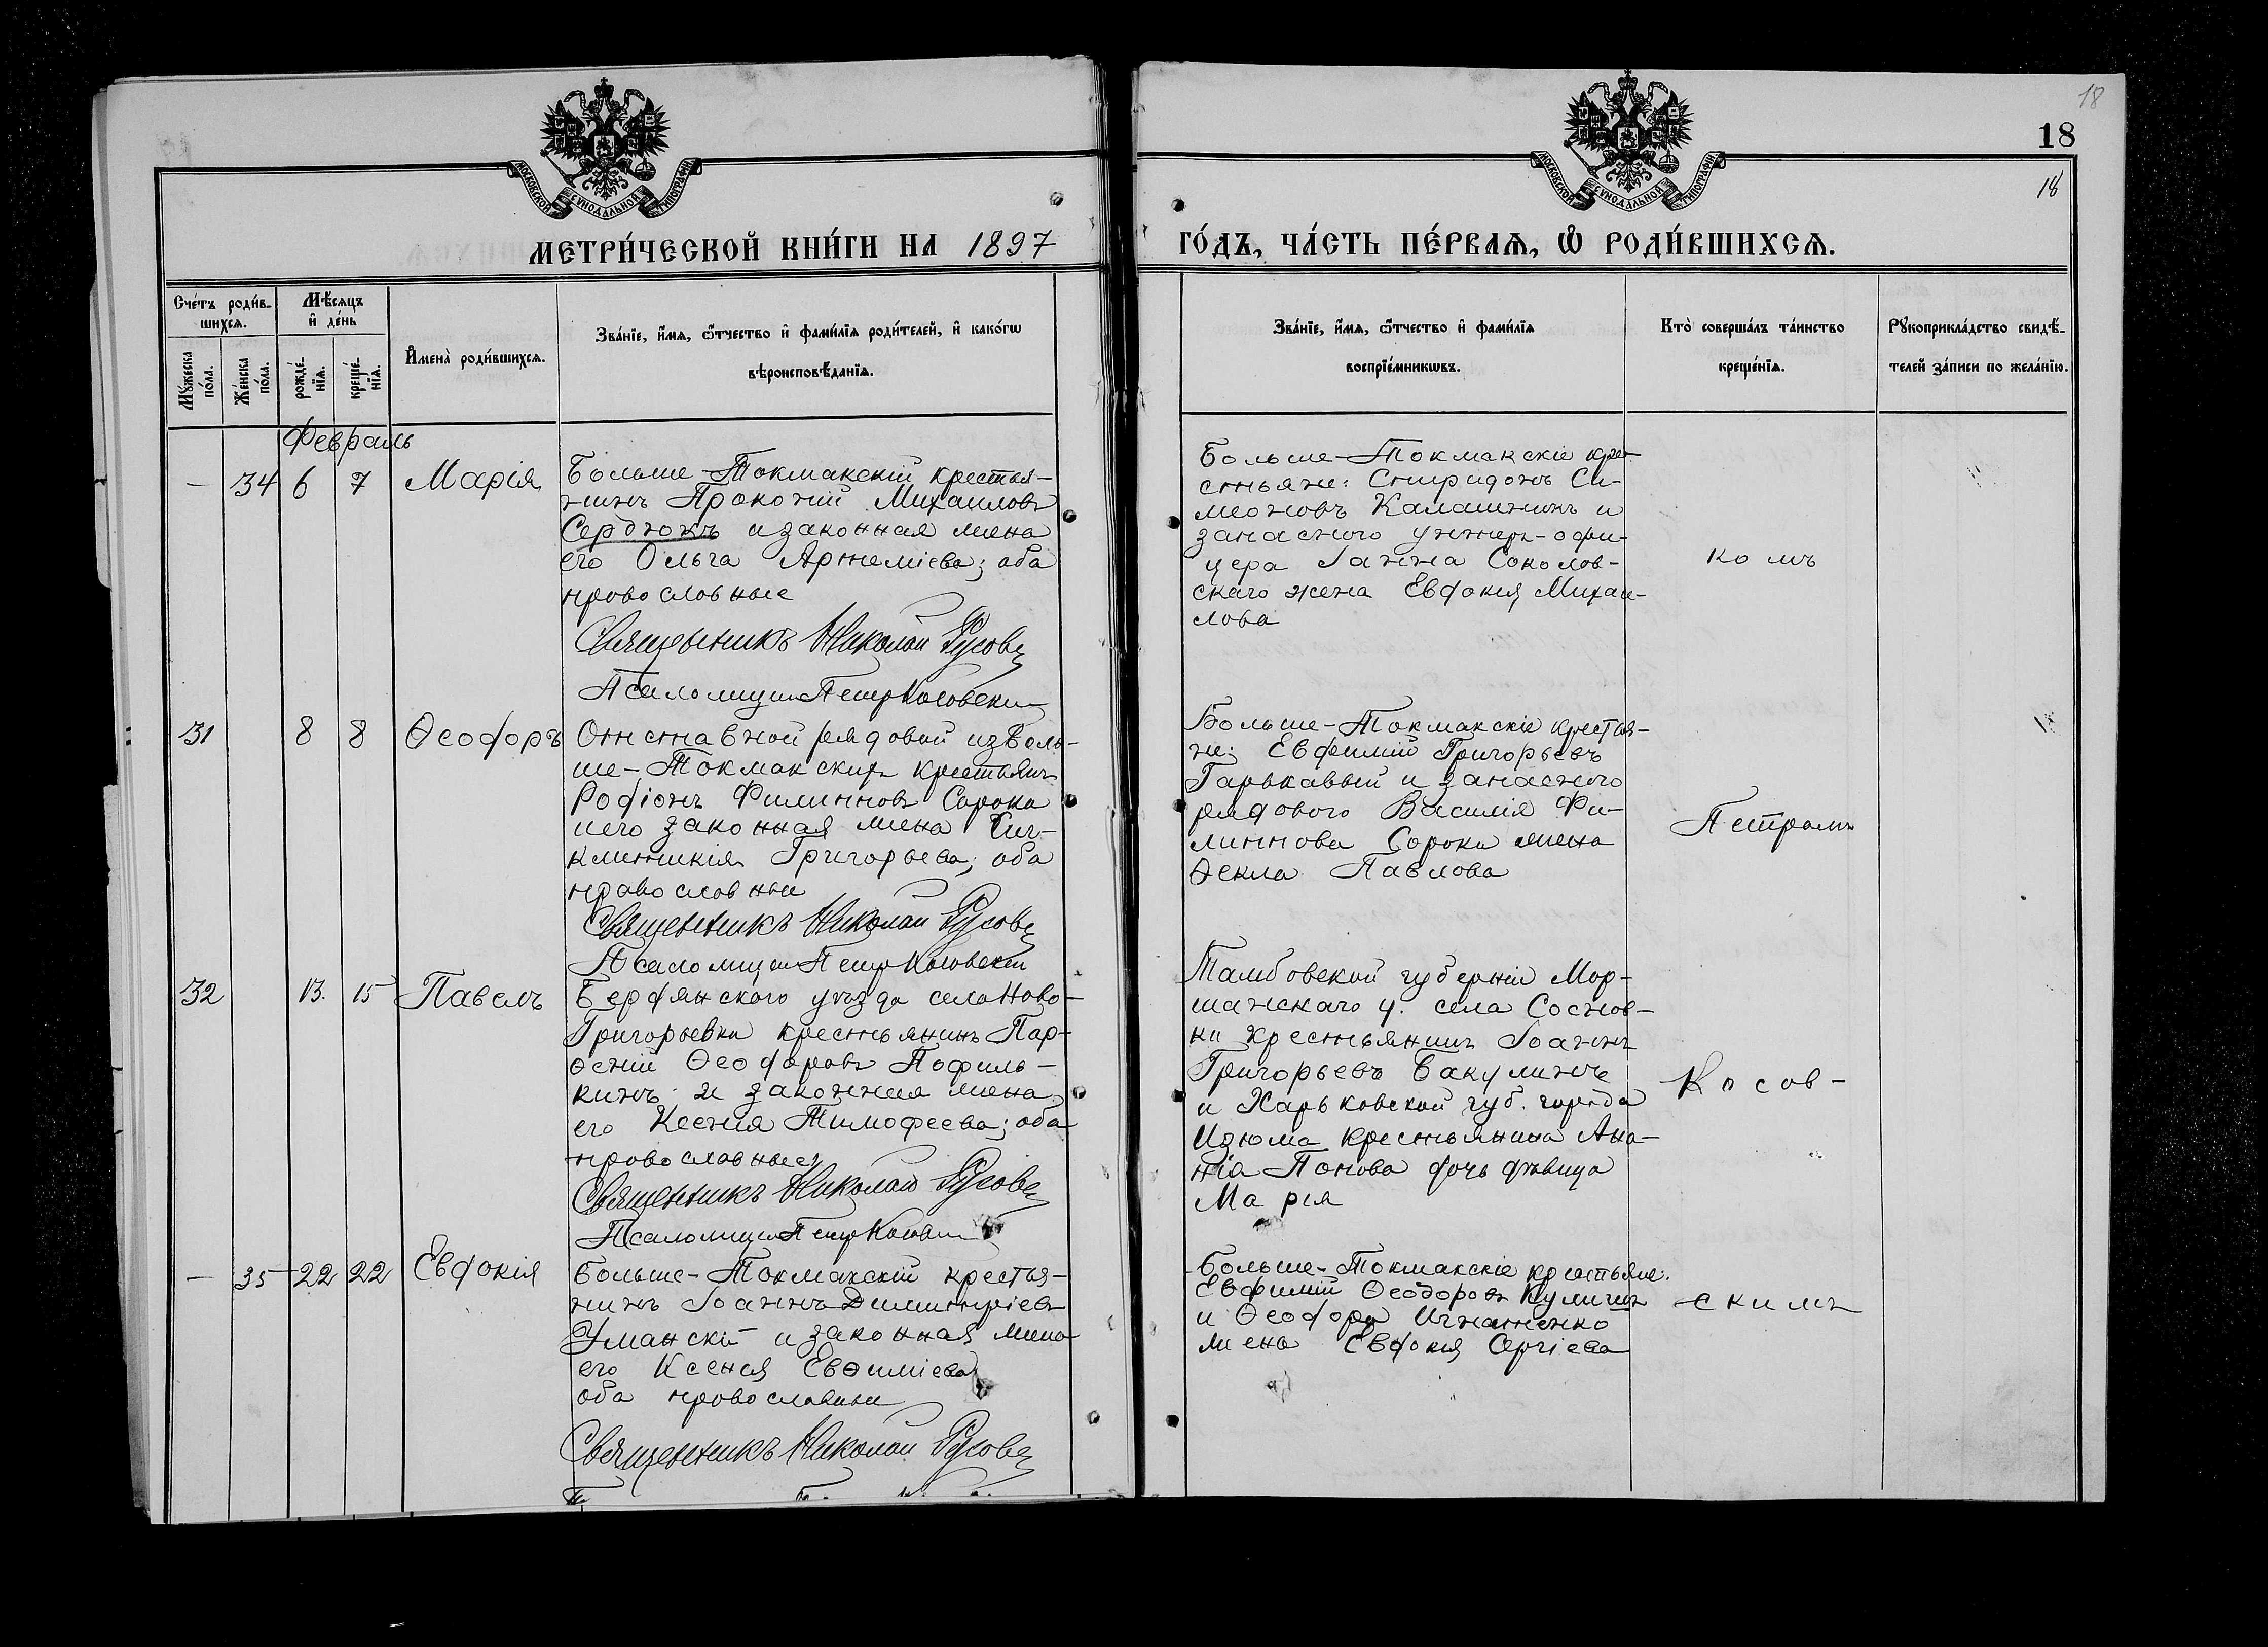 18
18
18
МОСКОВСКОЙ СѴНОДАЛЬНОЙ ТИПОГРАФІИ
МОСКОВСКОЙ СѴНОДАЛЬНОЙ ТИПОГРАФІИ
МЕТРИ́ЧЕСКОЙ КНИ́ГИ НА 1897
ГО́ДЪ, ЧА́СТЬ ПЕ́РВАѦ, Ѡ҆ РОДИ́ВШИХСѦ.
Сче́тъ роди́в-
шихсѧ.
Мꙋ́жеска по́ла.
Же́нска по́ла.
Мѣ́сѧцъ
и҆ де́нь
рожде́-
нїѧ.
креще́-
нїѧ.
И҆мена̀ роди́вшихсѧ.
Зва́нїе, и҆́мѧ, ѻ҆́тчество и҆ фами́лїѧ роди́телей, и҆ како́гѡ
вѣроисповѣ́данїѧ.
Зва́нїе, и҆́мѧ, ѻ҆́тчество и҆ фами́лїѧ
воспрїе́мникѡвъ.
Кто̀ соверша́лъ та́инство
креще́нїѧ.
Рꙋкоприкла́дство свидѣ́-
телей за́писи по жела́нїю.
Февраль
— 34 6 7 Марія
Больше-Токмакскій крестья-
нинъ Прокопій Михаиловъ
Сердюкъ и законная жена
его Ольга Артеміева; оба
православные
Священникъ Николай Русовъ
Псаломщикъ Петръ Косовскій
Больше-Токмакскіе кре-
стьяне: Спиридонъ Си-
меоновъ Калашникъ и
запасного унтеръ-офи-
цера Іоанна Соколов-
скаго жена Евдокія Михаи-
лова
комъ
31 8 8 Ѳеодоръ
Отставной рядовой изъ Боль-
ше-Токмакскихъ крестьянъ
Родіонъ Филипповъ Сорока
и его законная жена Син-
клитикія Григорьева; оба
православные
Священникъ Николай Русовъ
Псаломщикъ Петръ Косовскій
Больше-Токмакскіе крестья-
не: Евфимій Григорьевъ
Гарькавый и запасного
рядового Василія Фи-
липпова Сороки жена
Ѳекла Павлова
Петромъ
32 13. 15 Павелъ
Бердянскаго уѣзда села Ново-
Григорьевки крестьянинъ Пар-
ѳеній Ѳеодоровъ Пофиль-
кинъ и законная жена
его Ксенія Тимофеева; оба
православные
Священникъ Николай Русовъ
Псаломщикъ Петръ
Тамбовской губерніи Мор-
шанскаго у. села Соснов-
ки крестьянинъ Іоаннъ
Григорьевъ Бакулинъ
и Харьковской губ. города
Изюма крестьянина Ана-
нія Попова дочь дѣвица
Марія
Косов-
— 35 22 22 Евдокія
Больше-Токмакскій крестья-
нинъ Іоаннъ Димитріевъ
Уманскій и законная жена
его Ксенія Евѳиміева
оба православные
Священникъ Николай Русовъ
Больше-Токмакскіе крестьяне:
Евфимій Ѳеодоровъ Куличъ
и Ѳеодора Игнатенко
жена Евдокія Сергіева
скимъ